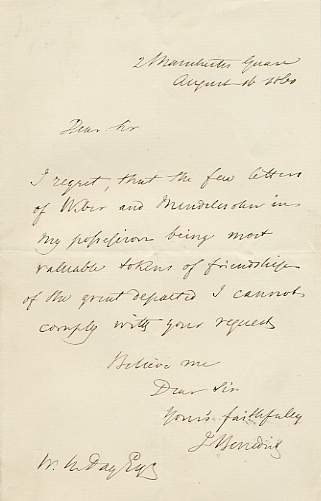 2 Manchester Square
August 16 1860
Dear Sir
I regret, that the few letters
of Weber and Mendelssohn in
my possession being most
valuable tokens of friendship
of the great departed I cannot
comply with your request
Believe me
Dear Sir
Yours faithfully
J Benedict
W. H. Day Esq